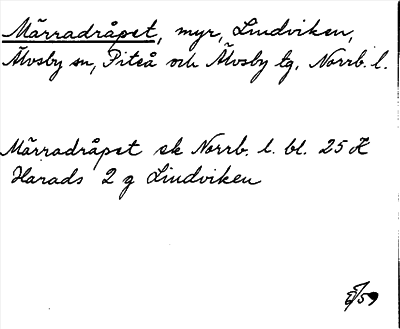 Märradråpet, myr, Lindviken,
Älvsby sn, Piteå och Älvsby tg, Norrb. l.
Märradråpet ek Norrb. l. bl. 25 H
Harads 2 g Lindviken
/59